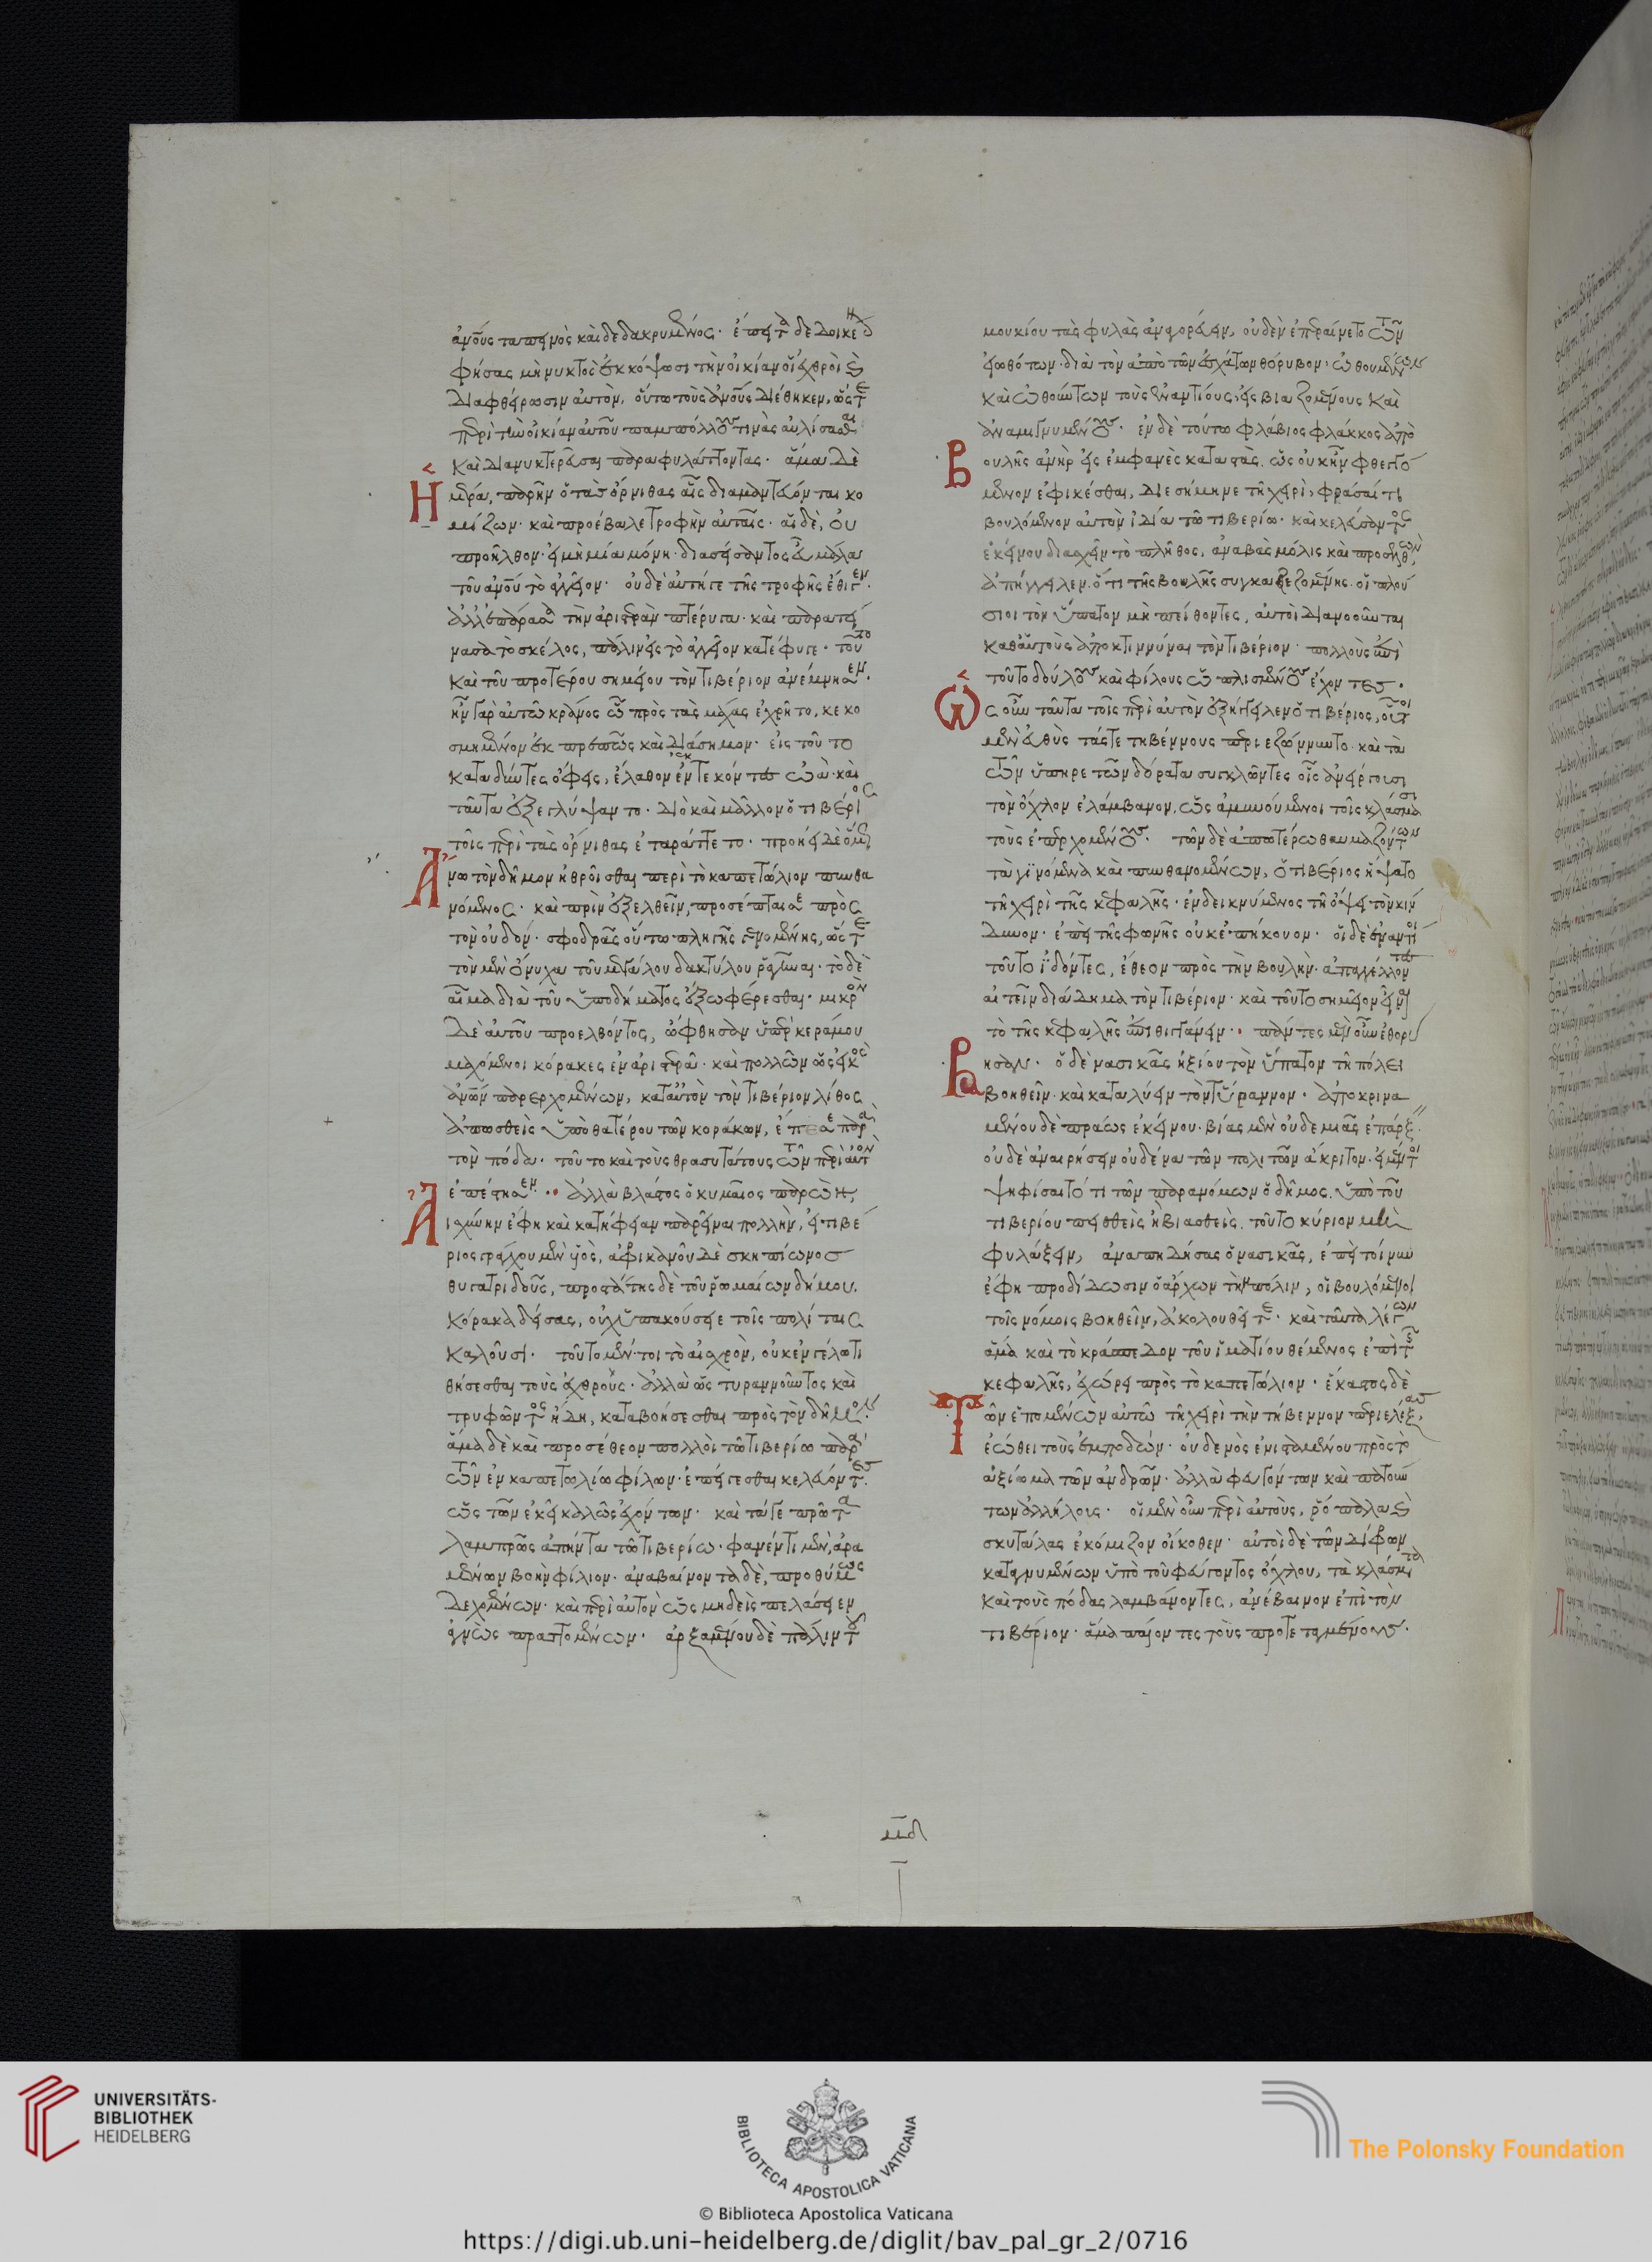 ἀνους ταπεινὸς καὶ δεδακρυμένος. ἔπειτα δεδοικέναι
φήσας μὴ νυκτὸς ἐκκόψωσι τὴν οἰκίαν οἱ ἐχθροὶ καὶ
διαφθείρωσιν αὐτὸν, οὕτω τοὺς ἀνους διέθηκεν, ὥστε
περὶ τὴν οἰκίαν αὐτοῦ παμπόλλους τινὰς αὐλίσασθαι
καὶ διανυκτερεῦσαι παραφυλάττοντας. ἅμα δὲ
Ἡμέρα, παρῆν ὁ τὰς ὄρνιθας αἷς διαμαντεύονται κο
μίζων. καὶ προέβαλε τροφὴν αὐταῖς. αἱ δὲ, οὐ
προῆλθον. εἰ μὴ μία μόνη. διασείσαντος εὖ μάλα
τοῦ ἀνου τὸ ἀγγεῖον. οὐδὲ αὐτή γε τῆς τροφῆς ἔθιγεν.
ἀλλ' ἐπάρασα τὴν ἀριστερὰν πτέρυγα. καὶ παρατεί
νασα τὸ σκέλος, πάλιν εἰς τὸ ἀγγεῖον κατέφυγε. τοῦτο
καὶ τοῦ προτέρου σημείου τὸν τιβέριον ἀνέμνησεν.
ἦν γὰρ αὐτῶ κράνος ὧ πρὸς τὰς μάχας ἐχρῆτο, κεκο
σμημένον ἐκπρεπῶς καὶ διάσημον. εἰς τοῦτο
καταδύντες ὄφεις, ἔλαθον ἐντεκόντες ὠὰ. καὶ
ταῦτα ἐξεγλύψαντο. διὸ καὶ μᾶλλον ὁ τιβέριος
τοῖς περὶ τὰς ὄρνιθας ἐταράττετο. προήει δὲ ὅμως
Ἄνω τὸν δῆμον ἠθροῖσθαι περὶ τὸ καπετώλιον πυνθα
νόμενος. καὶ πρὶν ἐξελθεῖν, προσέπταισε πρὸς
τὸν οὐδόν. σφοδρᾶς οὕτω πληγῆς γενομένης, ὥστε
τὸν μὲν ὄνυχα τοῦ μεγάλου δακτύλου ῥαγῆναι. τὸ δὲ
αἷμα διὰ τοῦ ὑποδήματος ἔξω φέρεσθαι. μικρὸν
δὲ αὐτοῦ προελθόντος, ὤφθησαν ὑπὲρ κεράμου
μαχόμενοι κόρακες ἐν ἀριστερᾶ. καὶ πολλῶν ὡς εἰκὸς
ἀνων παρερχομένων, κατ' αὐτὸν τὸν τιβέριον λίθος
ἀπωσθεὶς ὑπὸ θατέρου τῶν κοράκων, ἔπεσε παρὰ
τὸν πόδα. τοῦτο καὶ τοὺς θρασυτάτους τῶν περὶ αὐτὸν
ἐπέστησεν. ἀλλὰ βλάσος ὁ κυμαῖος παρὼν,
Αἰσχύνην ἔφη καὶ κατήφειαν παρεῖναι πολλὴν, εἰ τιβέ
ριος γράχου μὲν υἱὸς, ἀφρικανοῦ δὲ σκηπίωνος
θυγατριδοῦς, προστάτης δὲ τοῦ ῥωμαίων δήμου.
κόρακα δείσας, οὐχ ὑπακούσειε τοῖς πολίταις
καλοῦσι. τοῦτο μέντοι τὸ αἰσχρὸν, οὐκ ἐν γέλωτι
θήσεσθαι τοὺς ἐχθροὺς. ἀλλὰ ὡς τυραννοῦντος καὶ
τρυφῶντος ἤδη, καταβοήσεσθαι πρὸς τὸν δῆμον.
ἅμα δὲ καὶ προσέθεον πολλοὶ τῶ τιβερίω παρὰ
τῶν ἐν καπετωλίω φίλων. ἐπείγεσθαι κελεύοντες.
ὡς τῶν ἐκεῖ καλῶς ἐχόντων. καὶ τά γε πρῶτα
λαμπρῶς ἀπήντα τῶ τιβερίω. φανέντι μὲν, ἀρα
μένων βοὴν φίλιον. ἀναβαίνοντα δὲ, προθύμως
δεχομένων. καὶ περὶ αὐτὸν ὡς μηδεὶς πελάσειεν
ἀγνὼς πραττομένων. ἀρξαμένου δὲ πάλιν τοῦ
μουκίου τὰς φυλὰς ἀναγορεύειν, οὐδὲν ἐπεραίνετο τῶν
εἰωθότων. διὰ τὸν ἀπὸ τῶν ἐσχάτων θόρυβον. ὠθουμένων
καὶ ὠθούντων τοὺς ἐναντίους, εἰσβιαζομένους καὶ
ἀναμιγνυμένους. ἐν δὲ τούτω φλάβιος φλάκκος ἀπὸ
Βουλῆς ἀνὴρ εἰς ἐμφανὲς καταστὰς. ὡς οὐκ ἦν φθεγγό
μενον ἐφικέσθαι, διεσήμηνε τῆ χειρὶ, φράσαί τι
βουλόμενον αὐτὸν ἰδία τῶ τιβερίω. καὶ κελεύσαντος
ἐκείνου διασχεῖν τὸ πλῆθος, ἀναβὰς μόλις καὶ προσελθὼν,
ἀπήγγελεν. ὅτι τῆς βουλῆς συγκαθεζομένης. οἱ πλού
σιοι τὸν ὕπατον μὴ πείθοντες, αὐτοὶ διανοοῦνται
καθ' αὑτοὺς ἀποκτιννύναι τὸν τιβέριον. πολλοὺς ἐπὶ
τοῦτο δούλους καὶ φίλους ὡπλισμένους ἔχοντες.
Ὡς οὖν ταῦτα τοῖς περὶ αὐτὸν ἐξήγγελεν ὁ τιβέριος, οὗτοι
μὲν εὐθὺς τάς τε τηβέννους περιεζώννυντο. καὶ τὰ
τῶν ὑπηρετῶν δόρατα συγκλῶντες οἷς ἀνείργουσι
τὸν ὄχλον ἐλάμβανον. ὡς ἀμυνούμενοι τοῖς κλάσμασι
τοὺς ἐπερχομένους. τῶν δὲ ἀπωτέρω θαυμαζόντων
τὰ γινόμενα καὶ πυνθανομένων, ὁ τιβέριος ἥψατο
τῆ χειρὶ τῆς κεφαλῆς. ἐνδεικνύμενος τῆ ὄψει τὸν κίν
δυνον. ἐπεὶ τῆς φωνῆς οὐκ ἐπήκουον. οἱ δὲ ἐναντίοι
τοῦτο ἰδόντες, ἔθεον πρὸς τὴν βουλὴν. ἀπαγγέλλοντες
αἰτεῖν διάδημα τὸν τιβέριον. καὶ τοῦτο σημεῖον εἶναι
τὸ τῆς κεφαλῆς ἐπιθιγγάνειν. πάντες μὲν οὖν ἐθορυ
Βήθησαν. ὁ δὲ νασικᾶς ἠξίου τὸν ὕπατον τῆ πόλει
βοηθεῖν. καὶ καταλύειν τὸν τύραννον. ἀποκρινα
μένου δὲ πράως ἐκείνου. βίας μὲν οὐδεμιᾶς ἐπάρξειν.
οὐδὲ ἀναιρήσειν οὐδένα τῶν πολιτῶν ἄκριτον. εἰ μέντοι
ψηφίσαιτό τι τῶν παρανόμων ὁ δῆμος. ὑπὸ τοῦ
τιβερίου πεισθεὶς ἢ βιασθεὶς. τοῦτο κύριον μὴ
φυλάξειν, ἀναπηδήσας ὁ νασικᾶς, ἐπεὶ τοίνυν
ἔφη προδίδωσιν ὁ ἄρχων τὴν πόλιν, οἱ βουλόμενοι
τοῖς νόμοις βοηθεῖν, ἀκολουθεῖτε. καὶ ταῦτα λέγων
ἅμα καὶ τὸ κράσπεδον τοῦ ἱματίου θέμενος ἐπὶ τῆς
κεφαλῆς, ἐχώρει πρὸς τὸ καπετώλιον. ἕκαστος δὲ
Τῶν ἑπομένων αὐτῶ τῆ χειρὶ τὴν τήβεννον περιελίξας,
ἐώθει τοὺς ἐμποδών. οὐδενὸς ἐνισταμένου πρὸς τὸ
ἀξίωμα τῶν ἀνδρῶν. ἀλλὰ φευγόντων καὶ πατούν
των ἀλλήλους. οἱ μὲν οὖν περὶ αὐτοὺς, ῥόπαλα καὶ
σκυτάλας ἐκόμιζον οἴκοθεν. αὐτοὶ δὲ τῶν δίφρων
καταγνυμένων ὑπὸ τοῦ φεύγοντος ὄχλου, τὰ κλάσματα
καὶ τοὺς πόδας λαμβάνοντες, ἀνέβαινον ἐπὶ τὸν
τιβέριον. ἅμα παίοντες τοὺς προτεταγμένους.
UNIVERSITÄTS-
BIBLIOTHEK
HEIDELBERG
BIBLIOTECA APOSTOLICA VATICANA
The Polonsky Foundation
© Biblioteca Apostolica Vaticana
https://digi.ub.uni-heidelberg.de/diglit/bav_pal_gr_2/0716